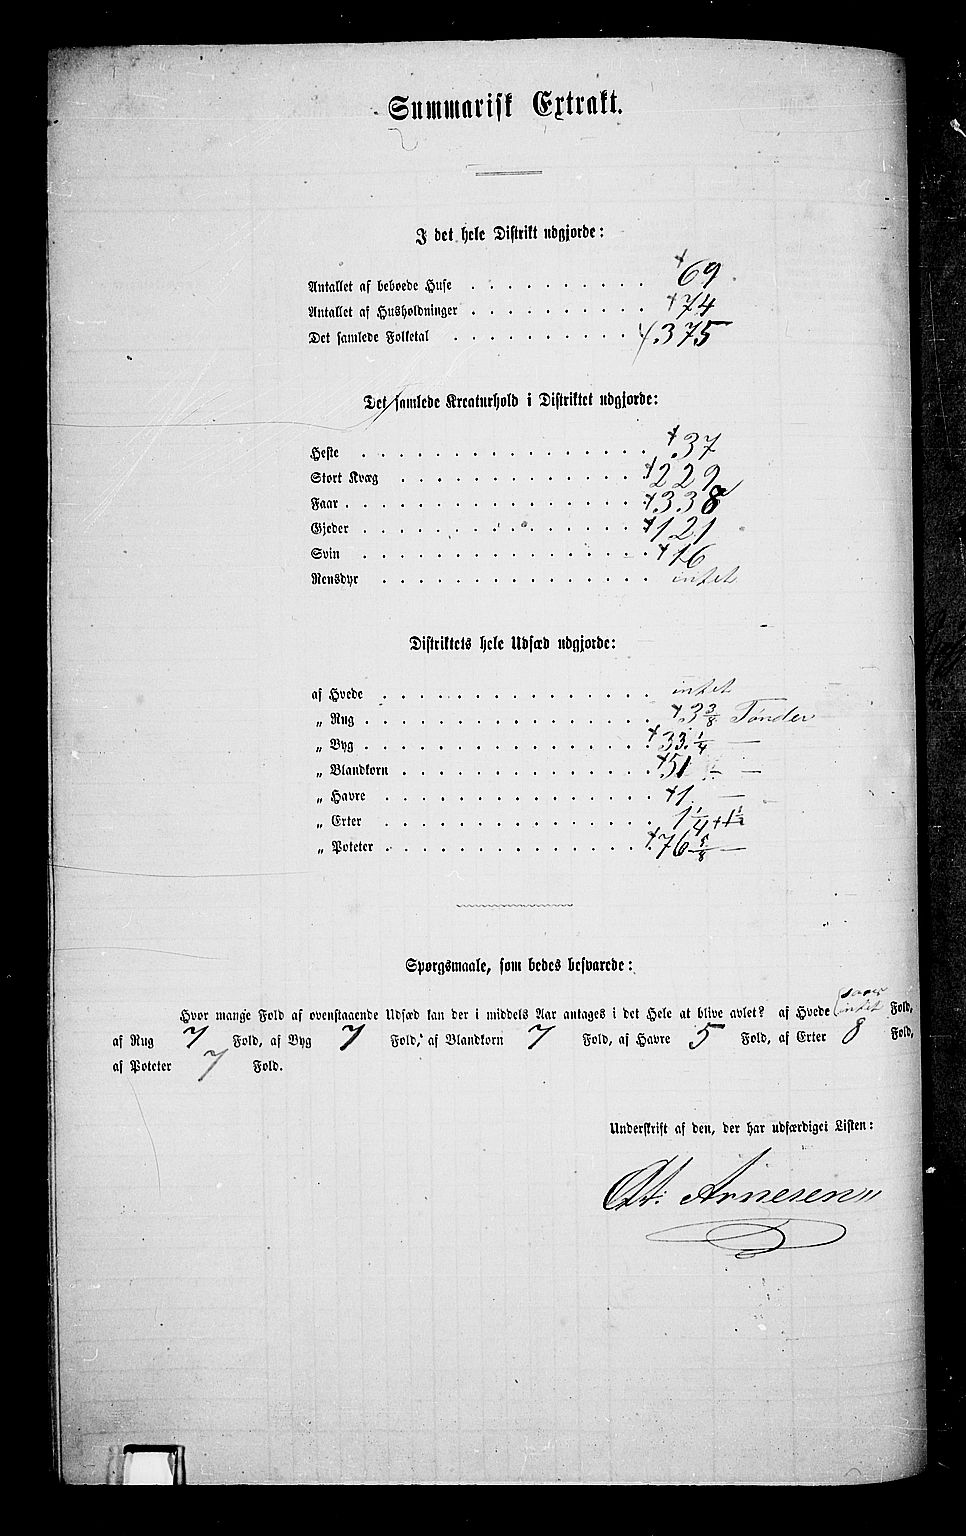 Summarisk Extrakt.
I det hele Distrikt udgjorde:
Antallet af beboede Huse . . . . . . . . . . 69
Antallet af Husholdninger . . . . . . . . . . 74
Det samlede Folketal . . . . . . . . . . 375
Det samlede Kreaturhold i Distriktet udgjorde:
Heste . . . . . . . . . . . . . . . . 37
Stort Kvæg . . . . . . . . . . . . . . 229
Faar . . . . . . . . . . . . . . . . . 338
Gjeder . . . . . . . . . . . . . . . . 121
Svin . . . . . . . . . . . . . . . . 16
Rensdyr . . . . . . . . . . . . . . . intet
Distriktets hele Udsæd udgjorde:
af Hvede . . . . . . . . . . . . . . . intet
„ Rug . . . . . . . . . . . . . . . . 3 3/8 Tønder
„ Byg . . . . . . . . . . . . . . . . 33 1/4 —
„ Blandkorn . . . . . . . . . . . . . . 51 —
„ Havre . . . . . . . . . . . . . . . 1 —
„ Erter . . . . . . . . . . . . . . . 1 1/4 + 1 1/2
„ Poteter . . . . . . . . . . . . . . . 76 5/8 —
Spørgsmaale, som bedes besvarede:
Hvor mange Fold af ovenstaaende Udsæd kan der i middels Aar antages i det Hele at blive avlet? af Hvede intet Fold,
af Rug 7 Fold, af Byg 7 Fold, af Blandkorn 7 Fold, af Havre 5 Fold, af Erter 8 Fold,
af Poteter 7 Fold.
Underskrift af den, der har udfærdiget Listen:
Arnesen